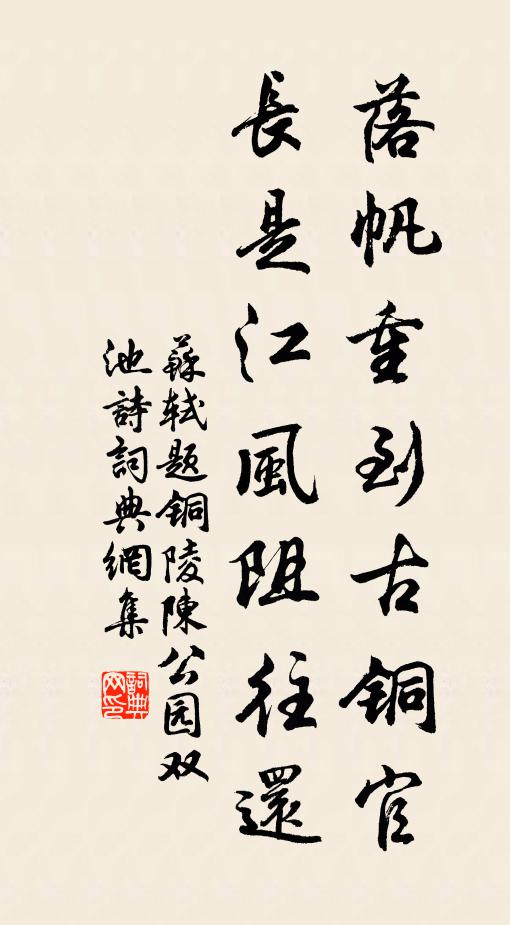 落帆重到古铜官
長是江風阻往還
蘇轼题铜陵陳公园双
池詩詞典網集
詞典网印